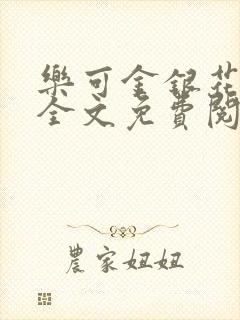 樂可金銀花
全文免費閱
農家妞妞